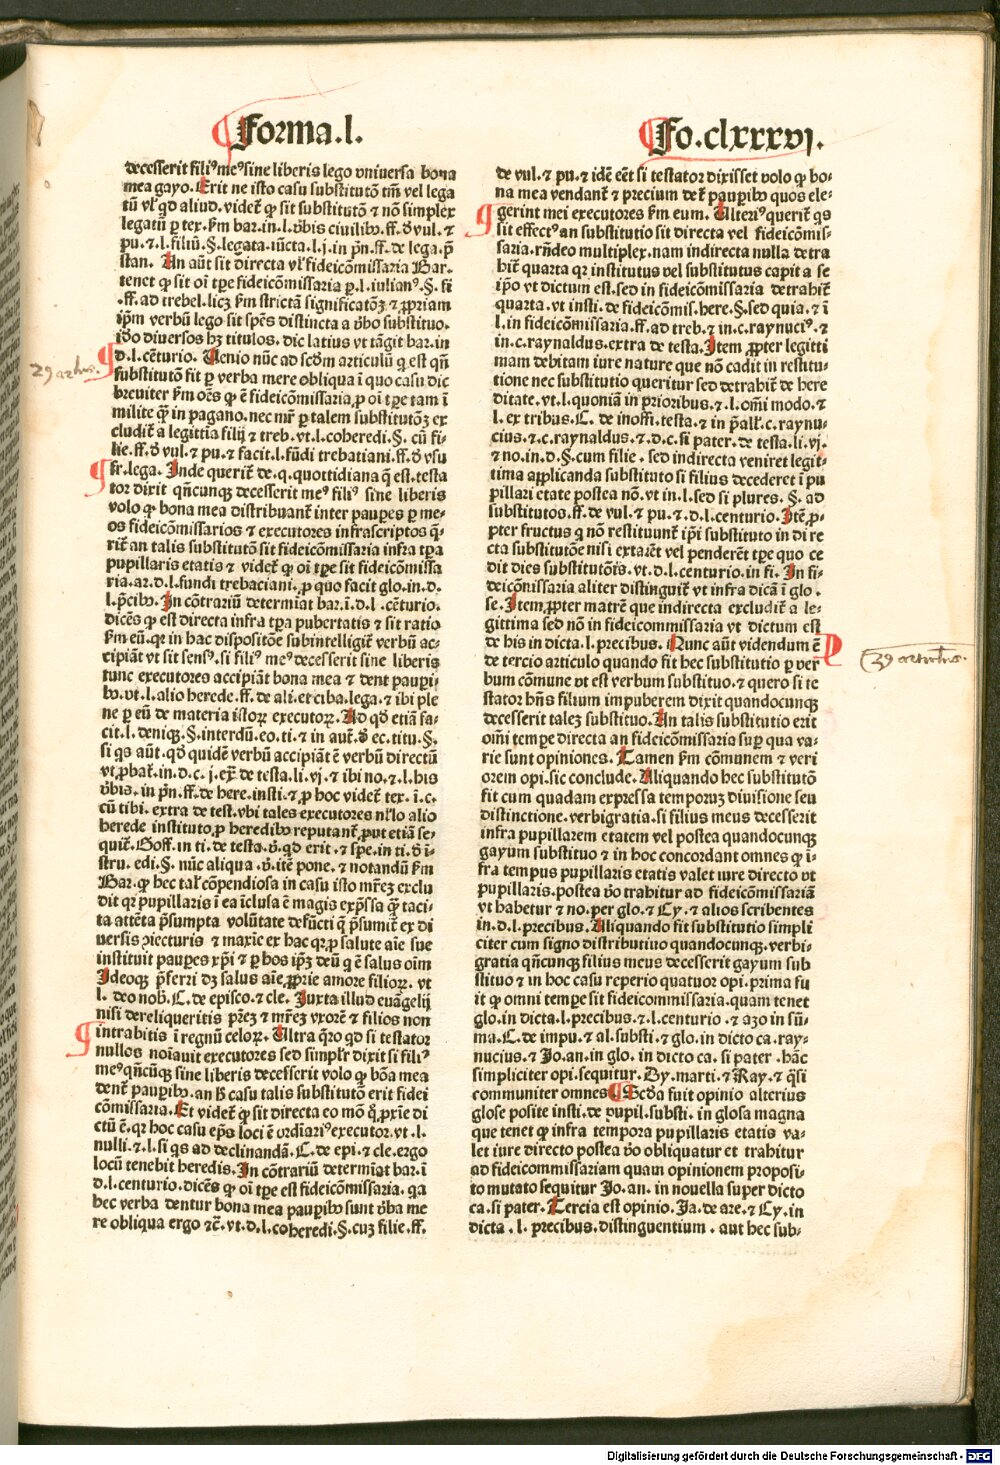 Forma.l.
Fo.clxxxvj.
decesserit fili⁹ me⁹ sine liberis lego vniuersa bona
mea gayo. Erit ne isto casu substitutō tm̄ vel lega
tū vl' qd aliud. videt̄ ꝙ sit substitutō ⁊ nō simplex
legatū ꝑ tex. ẜm bar. in. l. v̄bis ciuilib⁹. ff. ð vul. ⁊
pu. ⁊ l. filiū. §. legata. iūcta. l. j. in pn̄. ff. de lega. p̄
stan. An aūt sit directa vl' fideicōmissaria Bar.
tenet ꝙ sit oī tp̄e fideicōmissaria ꝑ. l. iulian⁹. §. si
.ff. ad trebel. licꝫ ẜm strictā significatōꝫ ⁊ ꝓpriam
ip̄m verbū lego sit sp̄es distincta a v̄bo substituo.
iðo diuersos hꝫ titulos. dic latius vt tāgit bar. in
d. l. cēturio. Uenio nūc ad scðm articulū q̄ est qn̄
substitutō fit ꝑ verba mere obliqua ī quo casu dic
breuiter ẜm oēs ꝙ ē fideicōmissaria, ꝓ oī tp̄e tam ī
milite q̄ꝫ in pagano. nec mr̄ ꝑ talem substitutōꝫ ex
cludit̄ a legittīa filij ⁊ treb. vt. l. coheredi. §. cū fi-
lie. ff. ð vul. ⁊ pu. ⁊ facit. l. fūdi trebatiani. ff. ð vsu
fr. lega. Inde querit̄ de. q. quottidiana q̄ est. testa
tor dixit qn̄cunqꝫ decesserit me⁹ fili⁹ sine liberis
volo ꝙ bona mea distribuant̄ inter pauꝑes ꝑ me-
os fideicōmissarios ⁊ executores infrascriptos q̄-
rit̄ an talis substitutō sit fideicōmissaria infra tp̄a
pupillaris etatis ⁊ videt̄ ꝙ oī tp̄e sit fideicōmissa
ria. ar. d. l. fundi trebaciani. ꝓ quo facit glo. in. d.
l. p̄cib⁹. In cōtrariū determīat bar. ī. d. l. cēturio.
dicēs ꝙ est directa infra tp̄a pubertatis ⁊ sit ratio
ẜm eū. qꝛ in hac dispositōe subintelligit̄ verbū ac-
cipiāt vt sit sens⁹. si fili⁹ me⁹ decesserit sine liberis
tunc executores accipiāt bona mea ⁊ dent pauꝑi-
b⁹. vt. l. alio herede. ff. de ali. et ciba. lega. ⁊ ibi ple
ne ꝑ eū de materia istoꝝ executoꝝ. Ad qð etiā fa-
cit. l. deniqꝫ. §. interdū. eo. ti. ⁊ in aut̄. ð ec. titu. §.
si qs aūt. qð quidē verbū accipiāt ē verbū directū
vt, ꝓbat̄. in. d. c. j. ex̄. de testa. li. vj. ⁊ ibi no. ⁊. l. his
v̄bis. in pn̄. ff. de here. insti. ⁊, ꝓ hoc videt̄ tex. ī. c.
cū tibi. extra de test. vbi tales executores nl'lo alio
herede instituto, ꝓ heredib⁹ reputant̄, ꝓut etiā se-
quit̄. Goff. in ti. de testa. v̄. qð erit. ⁊ spe. in ti. ð ī-
stru. edi. §. nūc aliqua. v̄. itē pone. ⁊ notandū ẜm
Bar. ꝙ hec tal' cōpendiosa in casu isto mr̄eꝫ exclu
dit qꝛ pupillaris ī ea īclusa ē magis exp̄ssa q̄ꝫ taci-
ta attēta p̄sumpta volūtate defūcti q̄ p̄sumit̄ ex di
uersis ꝯiecturis ⁊ maxīe ex hac qꝛ, ꝓ salute aīe sue
instituit pauꝑes xp̄i ⁊ ꝑ hos ip̄ꝫ deū q̄ ē salus oīm
Ideoqꝫ p̄ferri dꝫ salus aīe, ꝓprie amore filioꝝ. vt
l. deo nob̄. C. de episco. ⁊ cle. Juxta illud euāgelij
nisi dereliqueritis pr̄eꝫ ⁊ mr̄eꝫ vxorē ⁊ filios non
intrabitis ī regnū celoꝝ. Ultra q̄ro qð si testator
nullos noīauit executores sed simpl'r dixit si fili⁹
me⁹ qn̄cūqꝫ sine liberis decesserit volo ꝙ bōa mea
dent̄ pauꝑib⁹. an h̄ casu talis substitutō erit fidei
cōmissaria. Et videt̄ ꝙ sit directa eo mō q̄, ꝓxīe di
ctū ē. qꝛ hoc casu ep̄s loci ē ordīari⁹ executor. vt. l.
nulli. ⁊. l. si qs ad declinandā. C. de epi. ⁊ cle. ergo
locū tenebit heredis. In cōtrariū determīat bar. ī
d. l. centurio. dicēs ꝙ oī tp̄e est fideicōmissaria. qa
hec verba dentur bona mea pauꝑib⁹ sunt v̄ba me
re obliqua ergo ⁊c̄. vt. d. l. coheredi. §. cuꝫ filie. ff.
de vul. ⁊ pu. ⁊ idē eēt si testator dixisset volo ꝙ bo-
na mea vendant̄ ⁊ precium det̄ pauꝑib⁹ quos ele-
gerint mei executores ẜm eum. Ulteri⁹ querit̄ qs
sit effect⁹ an substitutio sit directa vel fideicōmis-
saria. rn̄deo multiplex. nam indirecta nulla detra
hit̄ quarta qꝛ institutus vel substitutus capit a se
ip̄o vt dictum est. sed in fideicōmissaria detrahit̄
quarta. vt insti. de fideicōmis. here. §. sed quia. ⁊ ī
l. in fideicōmissaria. ff. ad treb. ⁊ in. c. raynuci⁹. ⁊
in. c. raynaldus. extra de testa. Item, ꝓpter legitti
mam debitam iure nature que nō cadit in restitu-
tione nec substitutio queritur sed detrahit̄ de here
ditate. vt. l. quoniā in prioribus. ⁊. l. om̄i modo. ⁊
l. ex tribus. C. de inoffi. testa. ⁊ in p̄all'. c. raynu-
cius. ⁊. c. raynaldus. ⁊. d. c. si pater. de testa. li. vj.
⁊ no. in. d. §. cum filie. sed indirecta veniret legit-
tima applicanda substituto si filius decederet ī pu
pillari etate postea nō. vt in. l. sed si plures. §. ad
substitutos. ff. de vul. ⁊ pu. ⁊. d. l. centurio. Itē, ꝓ-
pter fructus q̄ nō restituunt̄ ip̄i substituto in di re
cta substitutōe nisi extarēt vel penderēt tp̄e quo ce
dit dies substitutōis. vt. d. l. centurio. in fi. In fi-
deicōmissaria aliter distinguit̄ vt infra dicā ī glo.
se. Item, ꝓpter matrē que indirecta excludit̄ a le-
gittima sed nō in fideicommissaria vt dictum est
de his in dicta. l. precibus. Nunc aūt videndum ē
de tercio articulo quando fit hec substitutio ꝑ ver
bum cōmune vt est verbum substituo. ⁊ quero si te
stator hn̄s filium impuberem dixit quandocunqꝫ
decesserit taleꝫ substituo. An talis substitutio erit
om̄i tempe directa an fideicōmissaria suꝑ qua va-
rie sunt opiniones. Tamen ẜm cōmunem ⁊ veri
orem opi. sic conclude. Aliquando hec substitutō
fit cum quadam expressa temporuꝫ diuisione seu
distinctione. verbigratia. si filius meus decesserit
infra pupillarem etatem vel postea quandocunqꝫ
gayum substituo ⁊ in hoc concordant omnes ꝙ ī-
fra tempus pupillaris etatis valet iure directo vt
pupillaris. postea v̄o trahitur ad fideicōmissariā
vt habetur ⁊ no. per glo. ⁊ Cy. ⁊ alios scribentes
in. d. l. precibus. Aliquando fit substitutio simpli
citer cum signo distributiuo quandocunqꝫ. verbi-
gratia qn̄cunqꝫ filius meus decesserit gayum sub
stituo ⁊ in hoc casu reperio quatuor opi. prima fu
it ꝙ omni tempe sit fideicommissaria. quam tenet
glo. in dicta. l. precibus. ⁊. l. centurio. ⁊ azo in sū-
ma. C. de impu. ⁊ al. substi. ⁊ glo. in dicto ca. ray-
nucius. ⁊ Jo. an. in glo. in dicto ca. si pater. hāc
simpliciter opi. sequitur. Dy. marti. ⁊ Ray. ⁊ q̄si
communiter omnes. Scða fuit opinio alterius
glose posite insti. de pupil. substi. in glosa magna
que tenet ꝙ infra tempora pupillaris etatis va-
let iure directo postea v̄o obliquatur et trahitur
ad fideicommissariam quam opinionem proposi-
to mutato sequitur Jo. an. in nouella super dicto
ca. si pater. Tercia est opinio. Ja. de are. ⁊ Cy. in
dicta. l. precibus. distinguentium. aut hec sub-
29 artlus.
39 articulus.
Digitalisierung gefördert durch die Deutsche Forschungsgemeinschaft - DFG